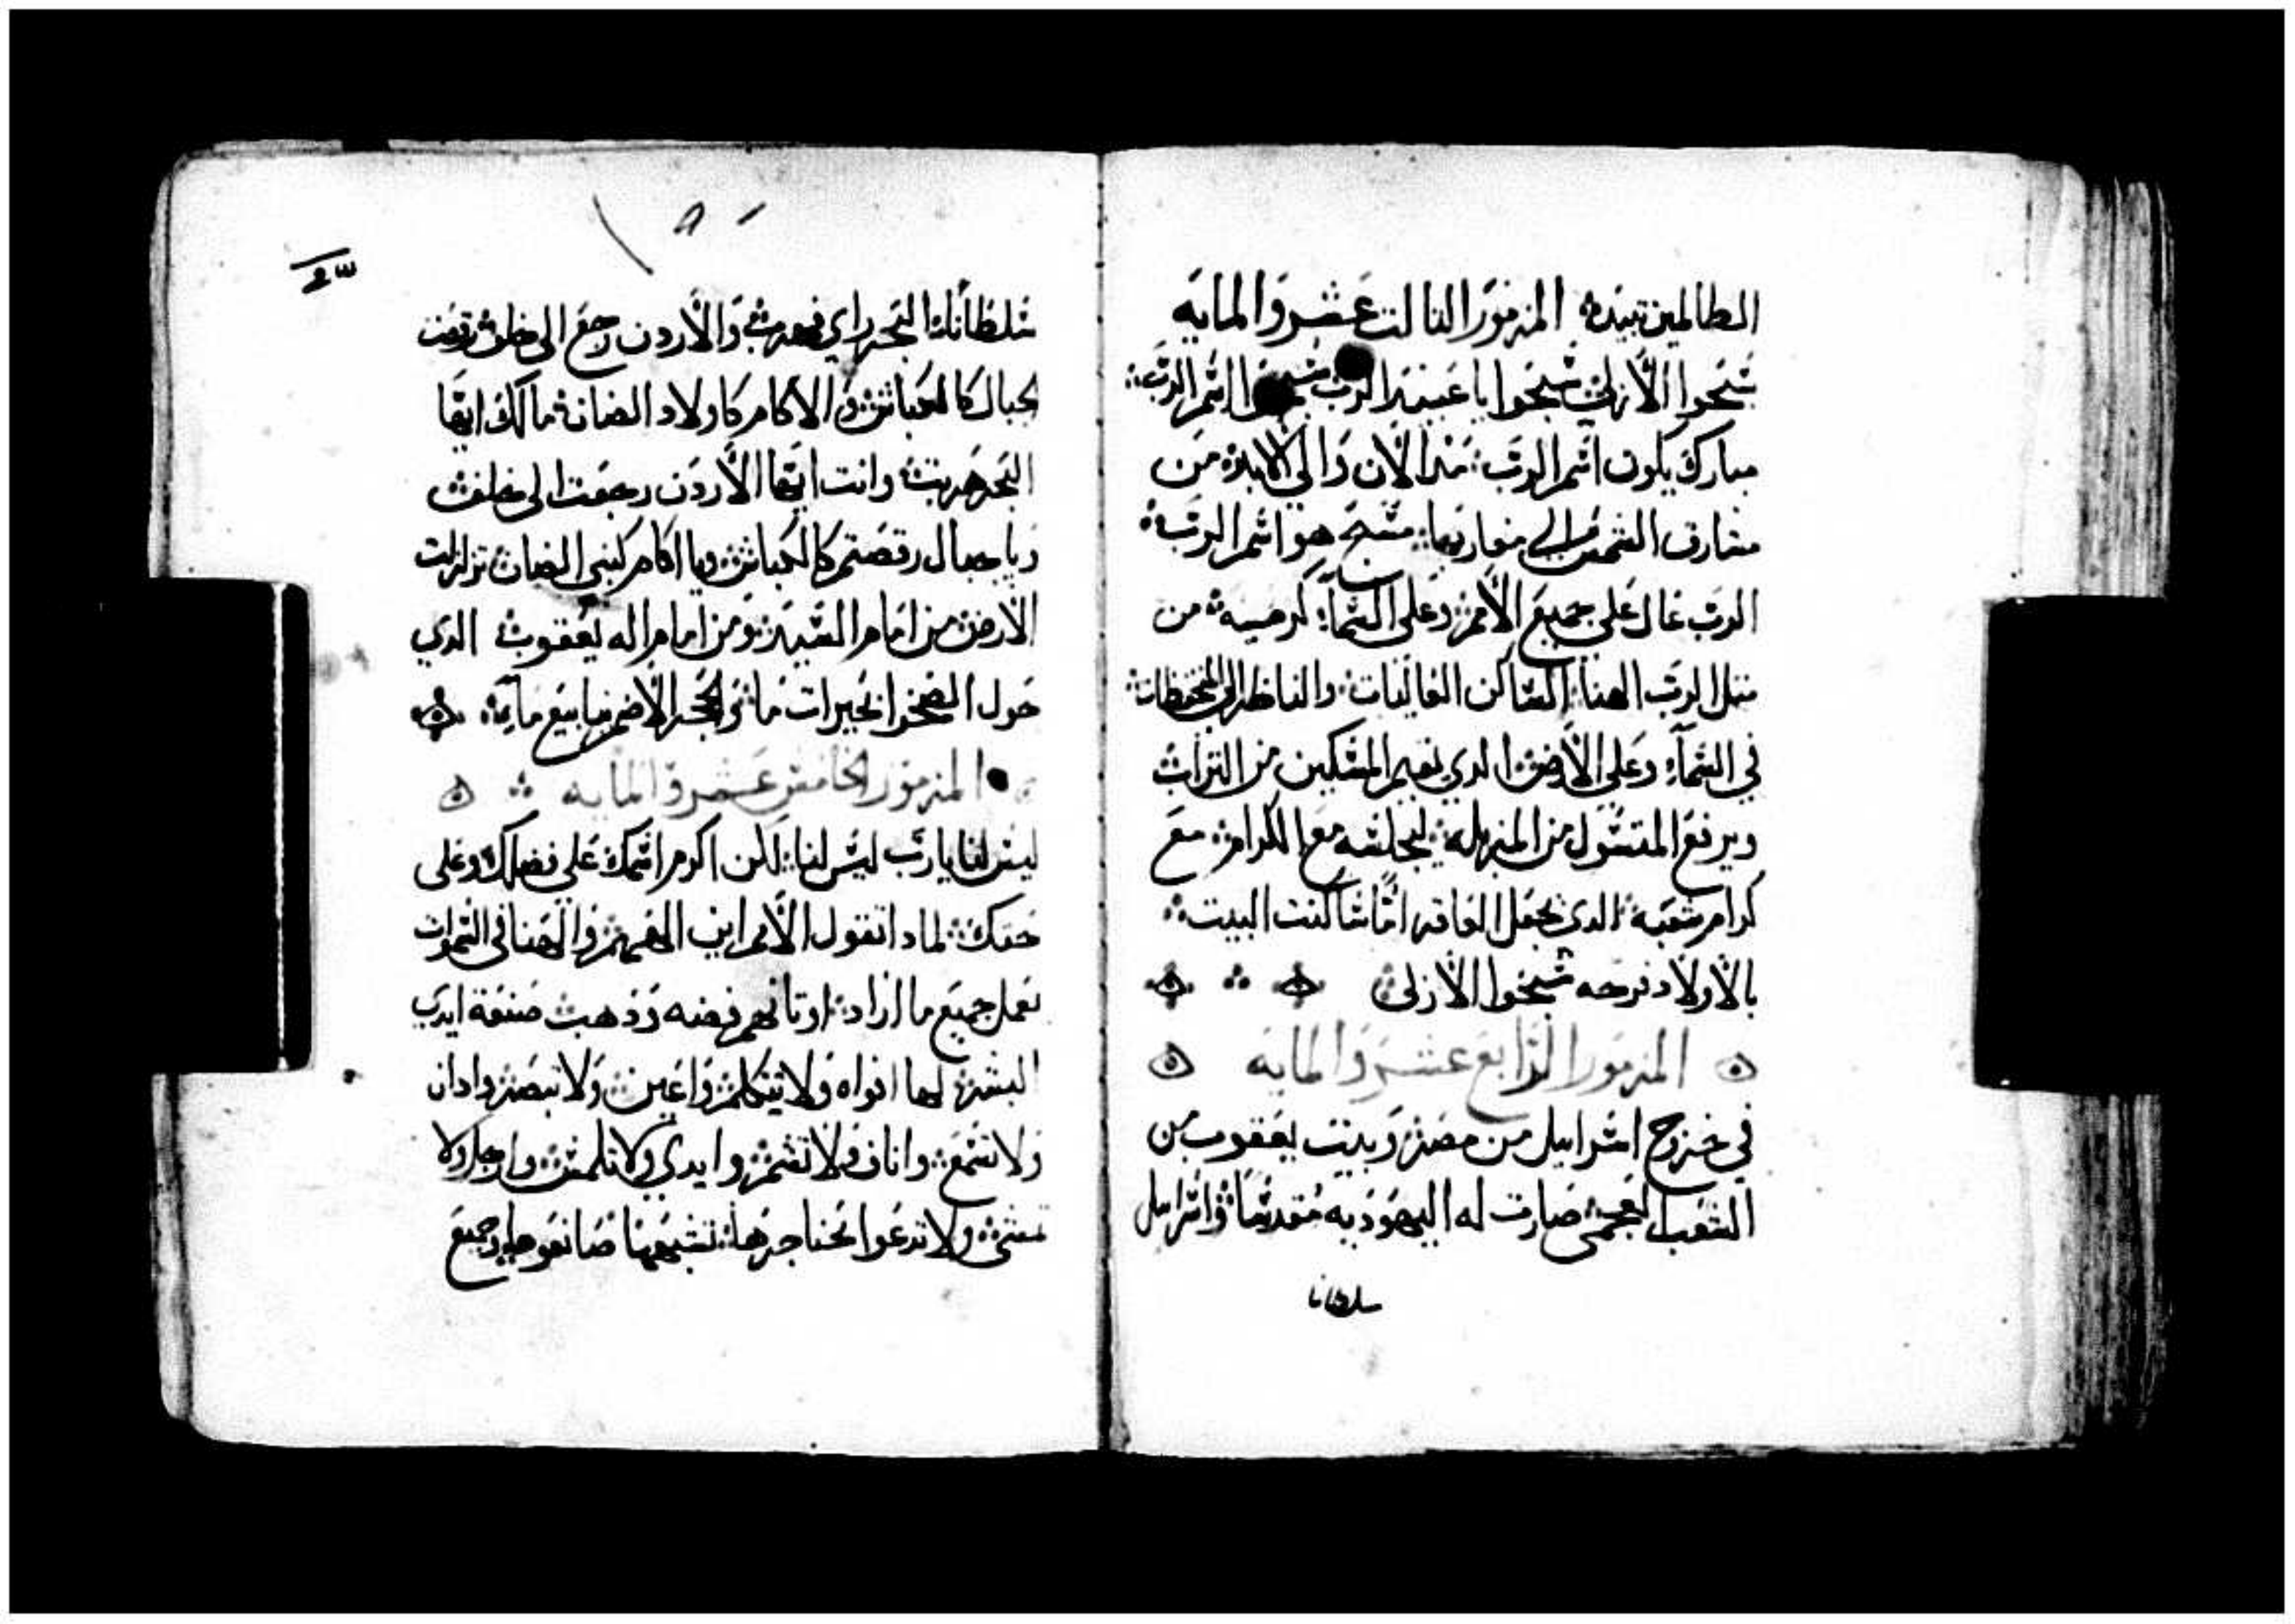 الطالمين تبيده المزمور التالت عشر والمايه
سبحوا الازلي سبحوا يا عبيد الرب سبحوا اسم الرب
مبارك يكون اسم الرب مند الان والي الابد من
مشارق الشمس الي مغاربها مسبح هو اسم الرب
الرب عال علي جميع الامم وعلي السما كرسيه من
متل الرب الهنا الساكن العاليات والناظر الي
في السماء وعلي الارض الدي يقيم المسكين من التراب
ويرفع من المزبله ليجلسه مع الكرام مع
كرام شعبه الدي يجعل العاقر اما ساكنت البيت
بالاولاد فرحه سبحوا الازلي
المزمور الرابع عشر والمايه
في خروج اسراييل من مصر وبيت يعقوب من
الشعب اعجمي صارت له اليهوديه مقدسا واسراييل
سلطانا
سلطاناله البحر راي فهرب والاردن رجع الي خلف رقصت
الجبال كالكباش والاكام كاولاد الضان مالك ايها
البحر هربت وانت ايها الاردن رجعت الي خلف
ويا جبال رقصتم كالكباش ويا اكام كبني الضان تزلزلت
الارض من امام السيد ومن امام اله يعقوب الدي
حول الصخوا بحيرات ما والحجر الاصم ينابيع مايه
المزمور الخامس عشر والمايه
ليس لنا يا رب ليس لنا لكن اكرم اسمك علي فضلك وعلي
حقك لمادا تقول الامم اين الههم والهنا في السموات
عمل جميع ما اراد اوتانهم فضه ودهب صنعة ايدي
البشر لها افواه ولا يتكلم واعين ولا تبصر وادان
ولا تسمع واناف ولا تشم وايدي ولا تلمس وارجل ولا
تمشي ولا تدعوا بحناجرها تشبهها صانعوها وجميع